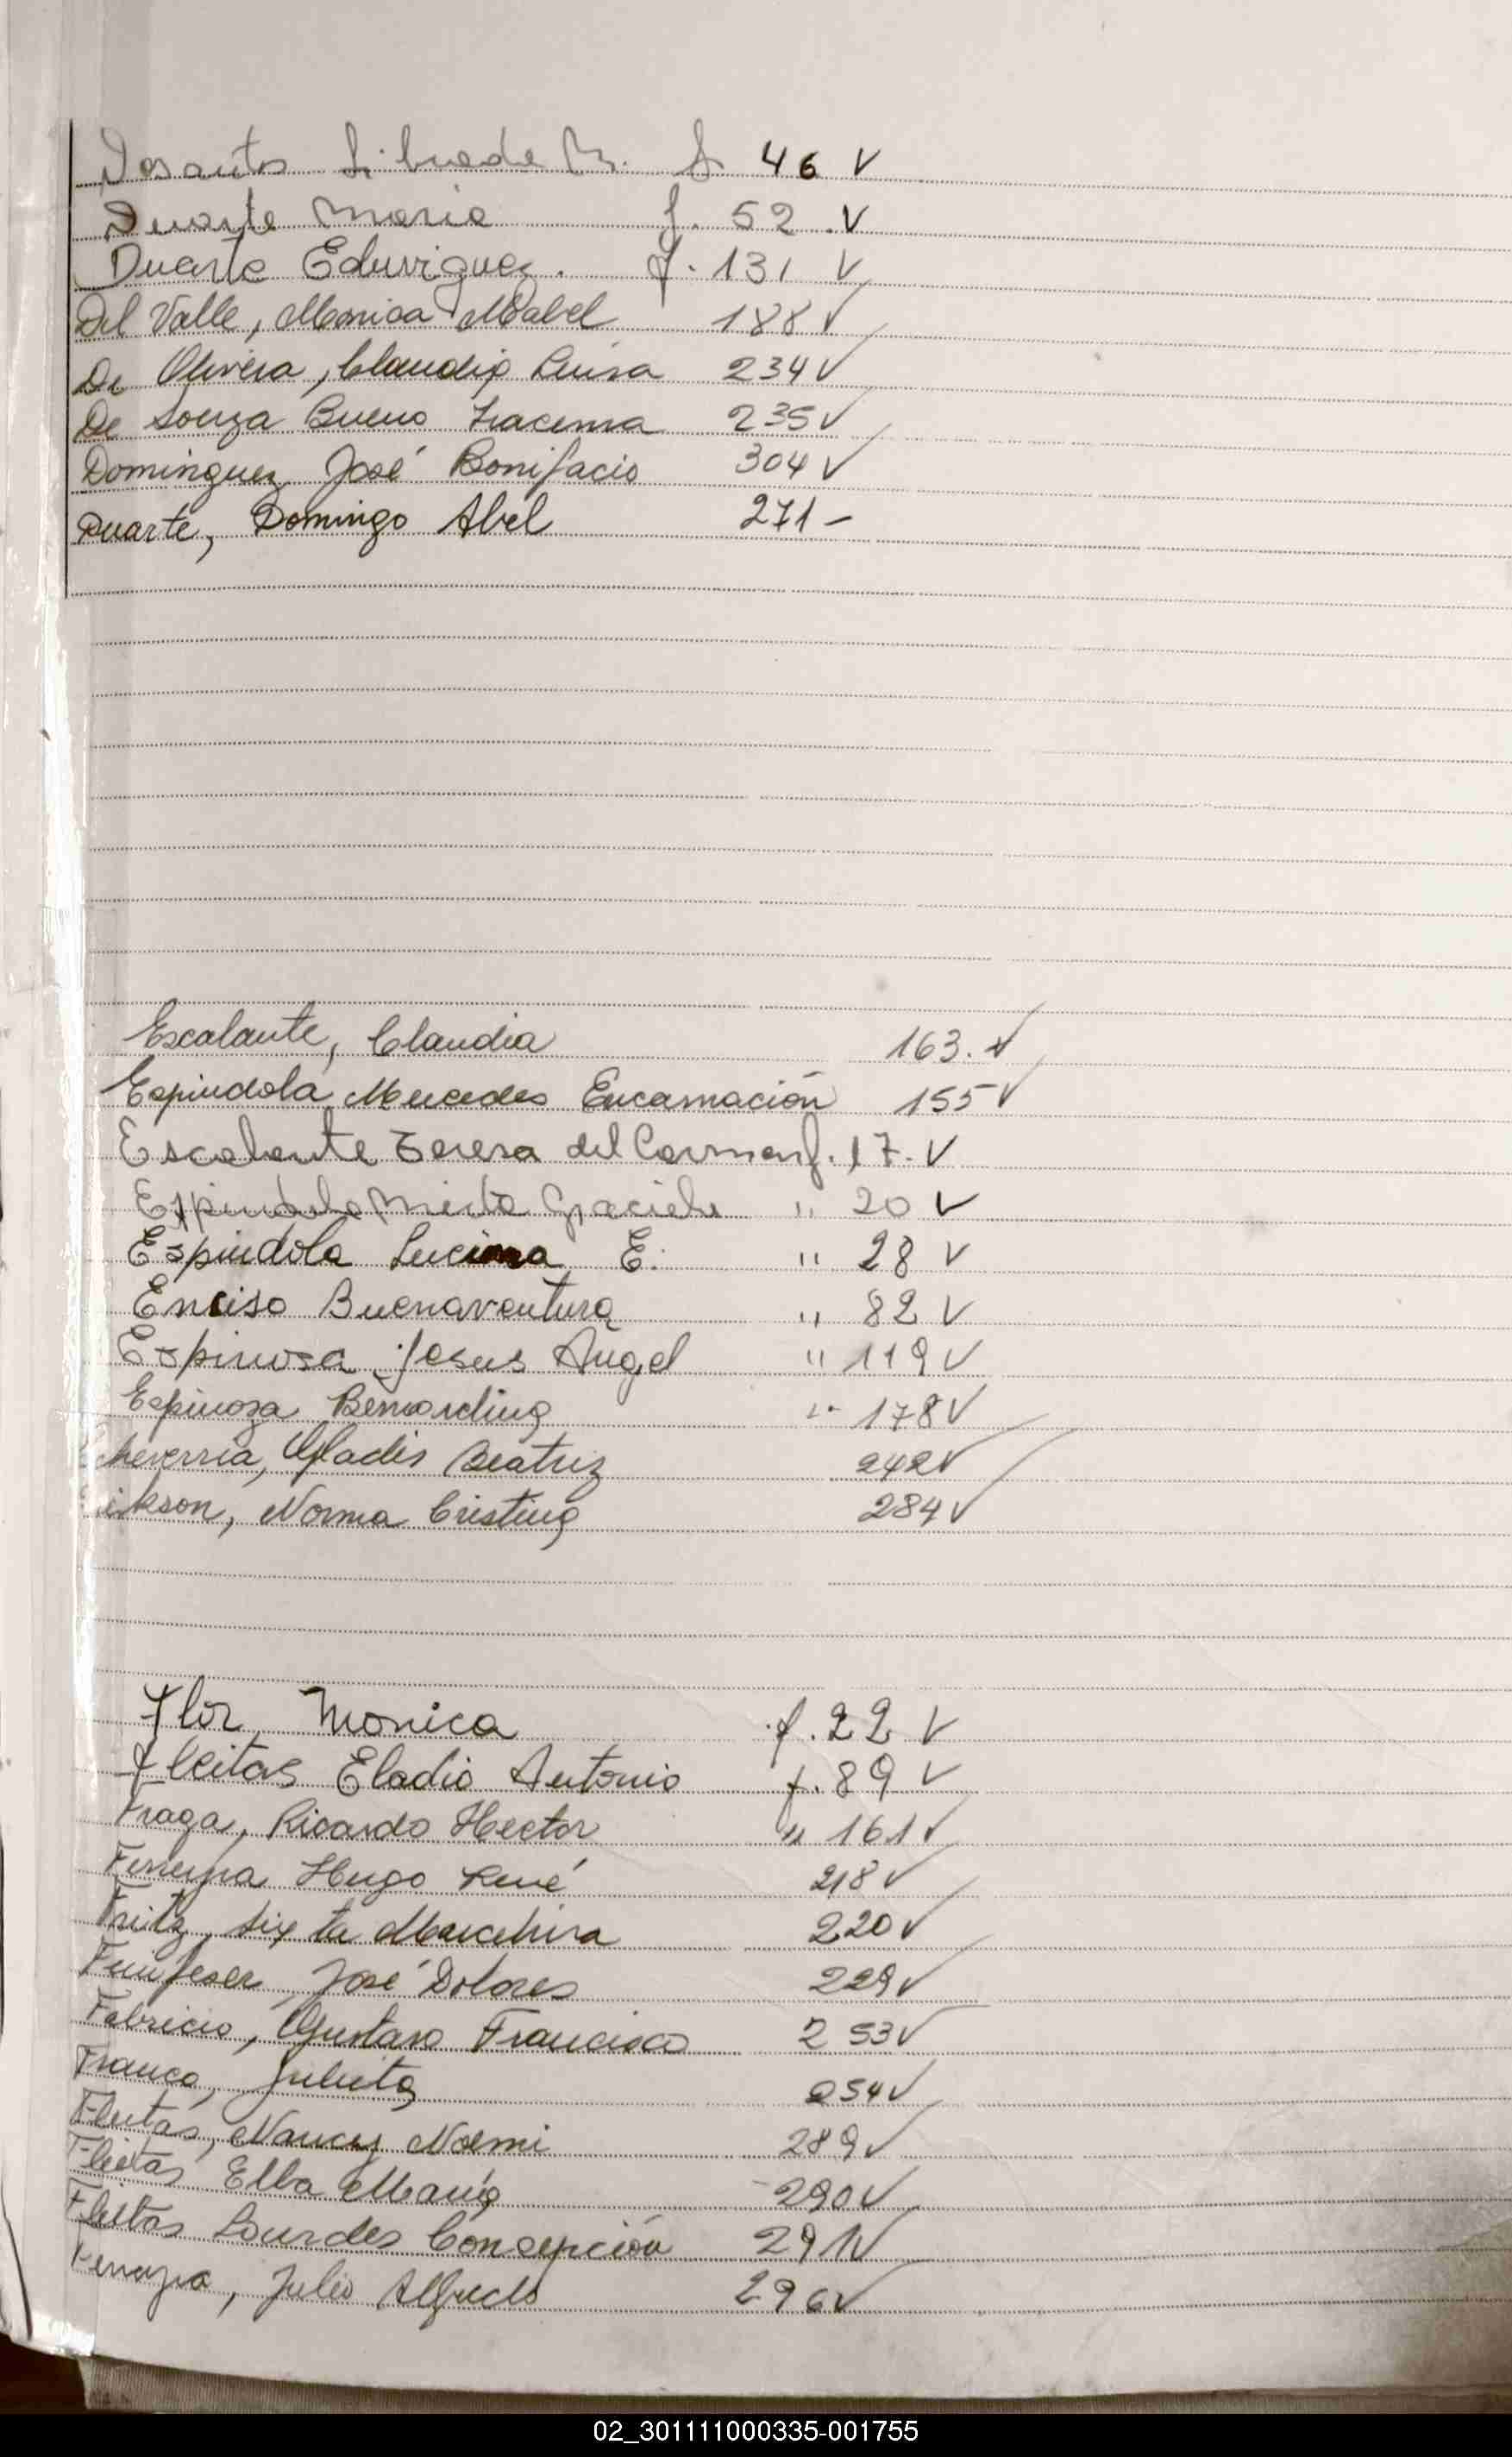 Dosantos Librada M. f. 46 V
Duarte Maria f. 52 . V
Duarte Eduviguez. f. 131 V
Del Valle, Monica Mabel 188 V
De Olivera, Claudia Luisa 234 V
De Souza Bueno Iracema 235 V
Dominguez José Bonifacio 304 V
Duarte, Domingo Abel 271 -
Escalante, Claudia 163. V
Espindola Mercedes Encarnación 155 V
Escalante Teresa del Carmen f. 17. V
Espindola Mirta Graciela " 20 V
Espindola Lucima E. " 28 V
Enciso Buenaventura " 82 V
Espinosa Jesus Angel " 119 V
Espinoza Bernardina " 178 V
cheverria, Gladis Beatriz 242 V
ikson, Norma Cristina 284 V
Flor Monica f. 22 V
fleitas Eladio Antonio f. 89 V
Fraga, Ricardo Hector " 161 V
Hugo René 218 V
Fritz, Sixta 220 V
José Dolores 229 V
Fabricio, Gustavo Francisco 253 V
Franco, Julieta 254 V
Fleitas, Nancy Noemi 289 V
Fleitas Elba María 290 V
Fleitas Lourdes Concepción 291 V
Julio Alfredo 296 V
02_301111000335-001755